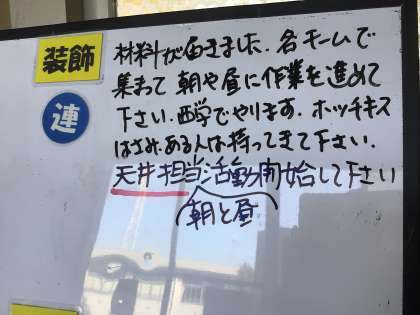 装飾
連
材料が届きました。各チームで
集まって朝や昼に作業を進めて
下さい。西学でやります。ホッチキス
はさみ、ある人は持ってきて下さい。
天井担当活動開始して下さい
(朝と昼)